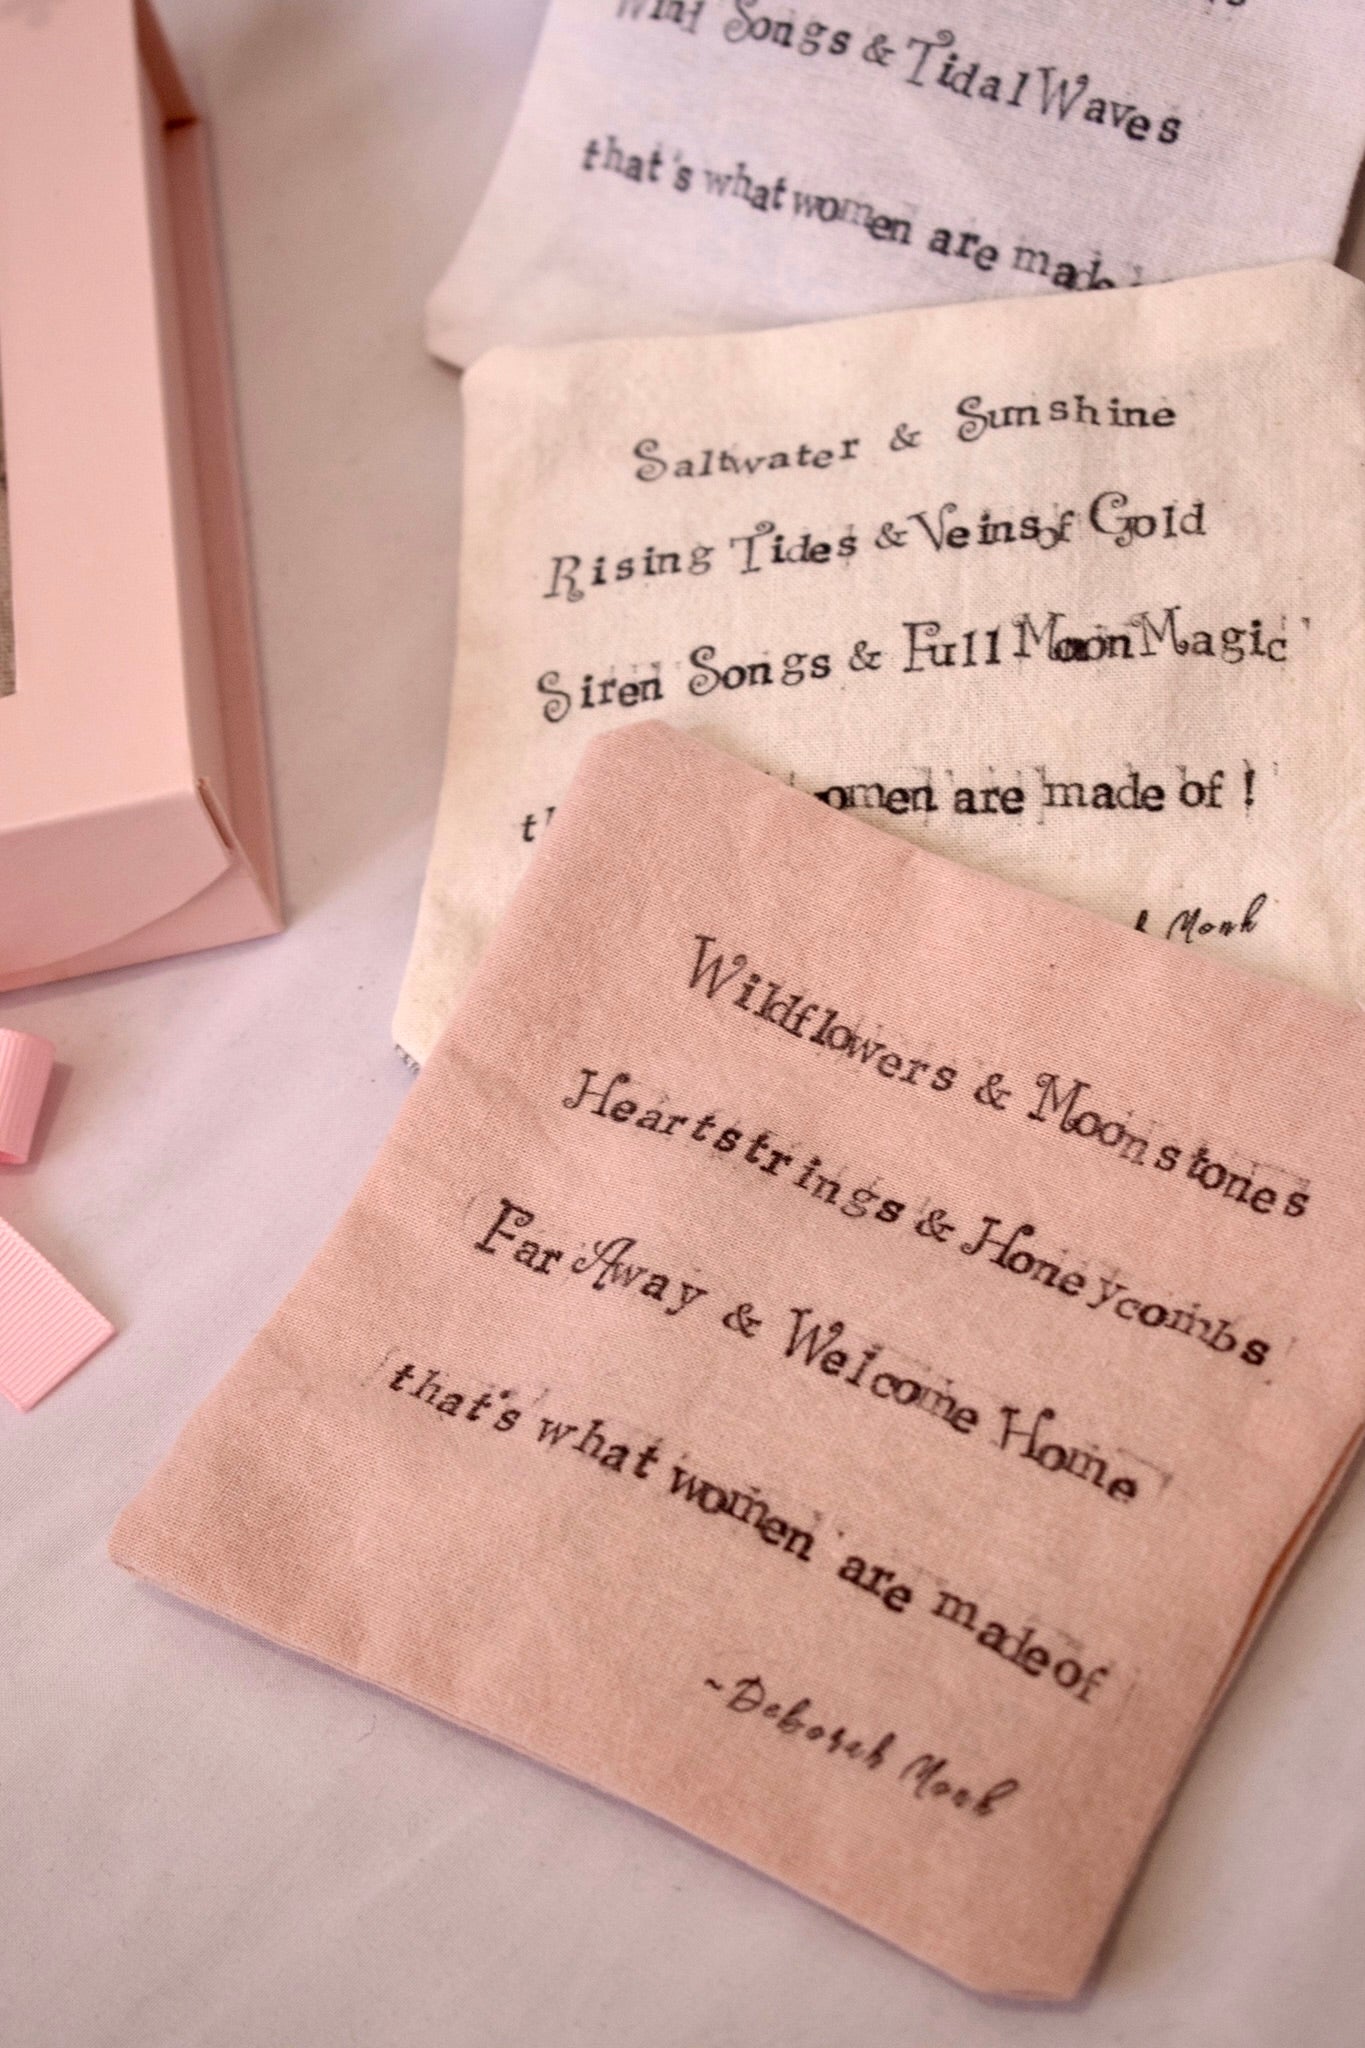 Songs & Tidal Waves
that's what women are made
Saltwater & Sunshine
Rising Tides & Veins of Gold
Siren Songs & Full Moon Magic
women are made of !
Monk
Wildflowers & Moonstones
Heartstrings & Honeycombs
Far Away & Welcome Home
that's what women are made of
~Deborah Monk